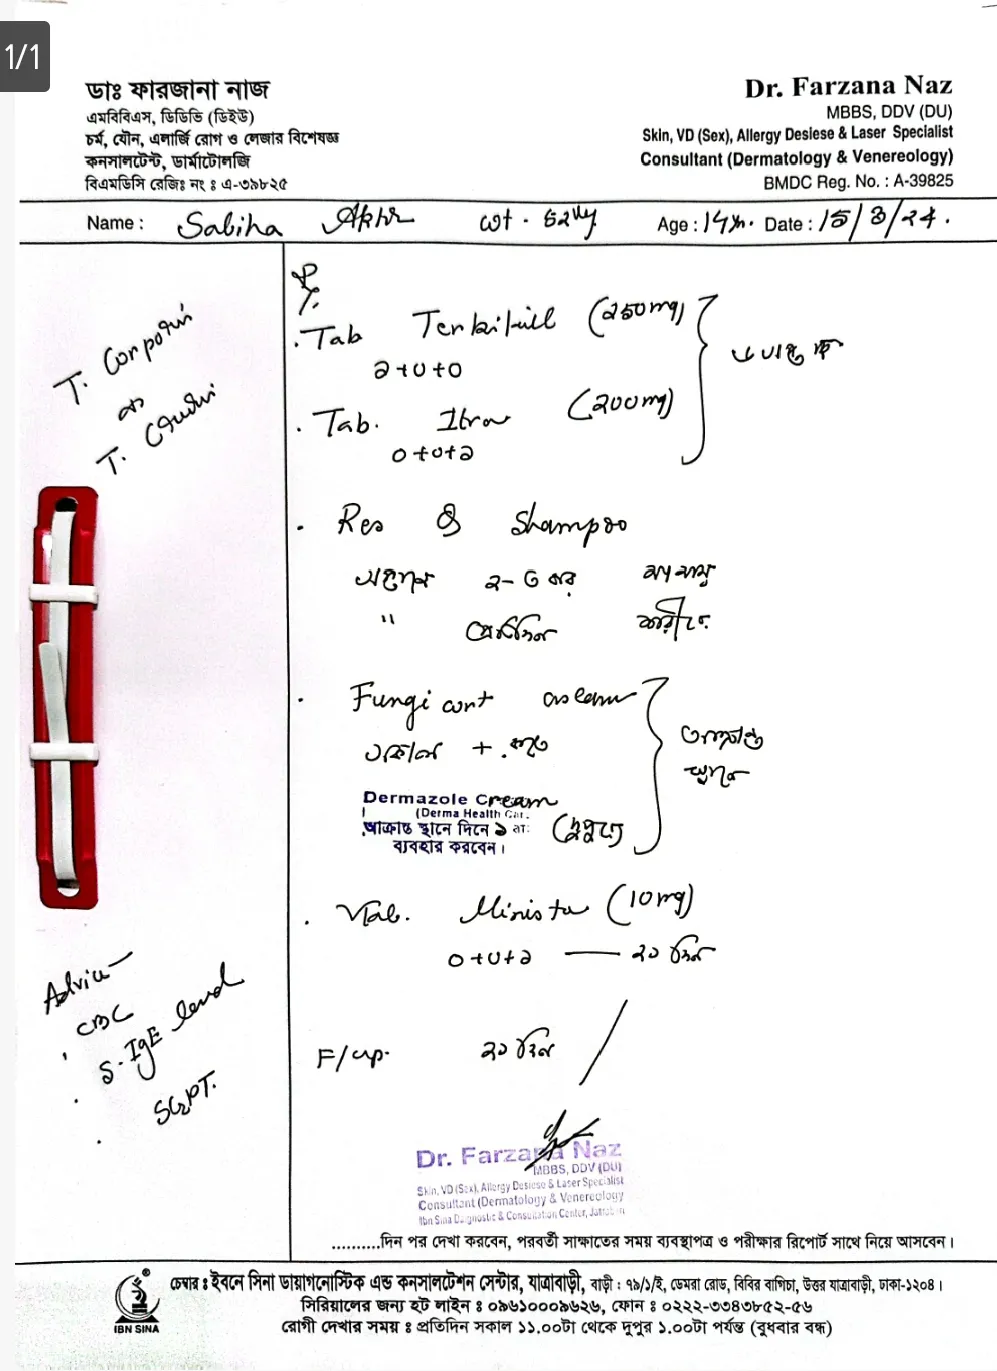 1/1
ডাঃ ফারজানা নাজ
এমবিবিএস, ডিডিভি (ডিইউ)
চর্ম, যৌন, এলার্জি রোগ ও লেজার বিশেষজ্ঞ
কনসালটেন্ট, ডার্মাটোলজি
বিএমডিসি রেজিঃ নং ঃ এ-৩৯৮২৫
Dr. Farzana Naz
MBBS, DDV (DU)
Skin, VD (Sex), Allergy Desiese & Laser Specialist
Consultant (Dermatology & Venereology)
BMDC Reg. No. : A-39825
Name : Sabiha Akhr wt - 52 kg Age : 14 yr. Date : 15/3/24.
T. Corporis
T.
Advice
CBC
S. IgE level
SGPT.
Tab (250mg)
১+০+০
Tab. Itra (200mg)
০+০+১
Shampoo
২-৩ বার
"
প্রতিদিন
Fungi cort cream
সকাল + রাতে
আক্রান্ত
স্থানে
Dermazole Cream
(Derma Health Car.
আক্রান্ত স্থানে দিনে ১ (দুপুরে)
ব্যবহার করবেন।
Tab. (10mg)
০+০+১ — ২১ দিন
F/up. ২১ দিন
Dr. Farzana Naz
MBBS, DDV (DU)
Skin, VD (Sex), Allergy Desiese & Laser Specialist
Consultant (Dermatology & Venereology)
Ibn Sina Diagnostic & Consultation Center,
..........দিন পর দেখা করবেন, পরবর্তী সাক্ষাতের সময় ব্যবস্থাপত্র ও পরীক্ষার রিপোর্ট সাথে নিয়ে আসবেন।
IBN SINA
চেম্বার ঃ ইবনে সিনা ডায়াগনোস্টিক এন্ড কনসালটেশন সেন্টার, যাত্রাবাড়ী, বাড়ী : ৭৯/১/ই, ডেমরা রোড, বিবির বাগিচা, উত্তর যাত্রাবাড়ী, ঢাকা-১২০৪।
সিরিয়ালের জন্য হট লাইন ঃ ০৯৬১০০০৯৬২৬, ফোন ঃ ০২২২-৩৩৪৩৮৫২-৫৬
রোগী দেখার সময় ঃ প্রতিদিন সকাল ১১.০০টা থেকে দুপুর ১.০০টা পর্যন্ত (বুধবার বন্ধ)